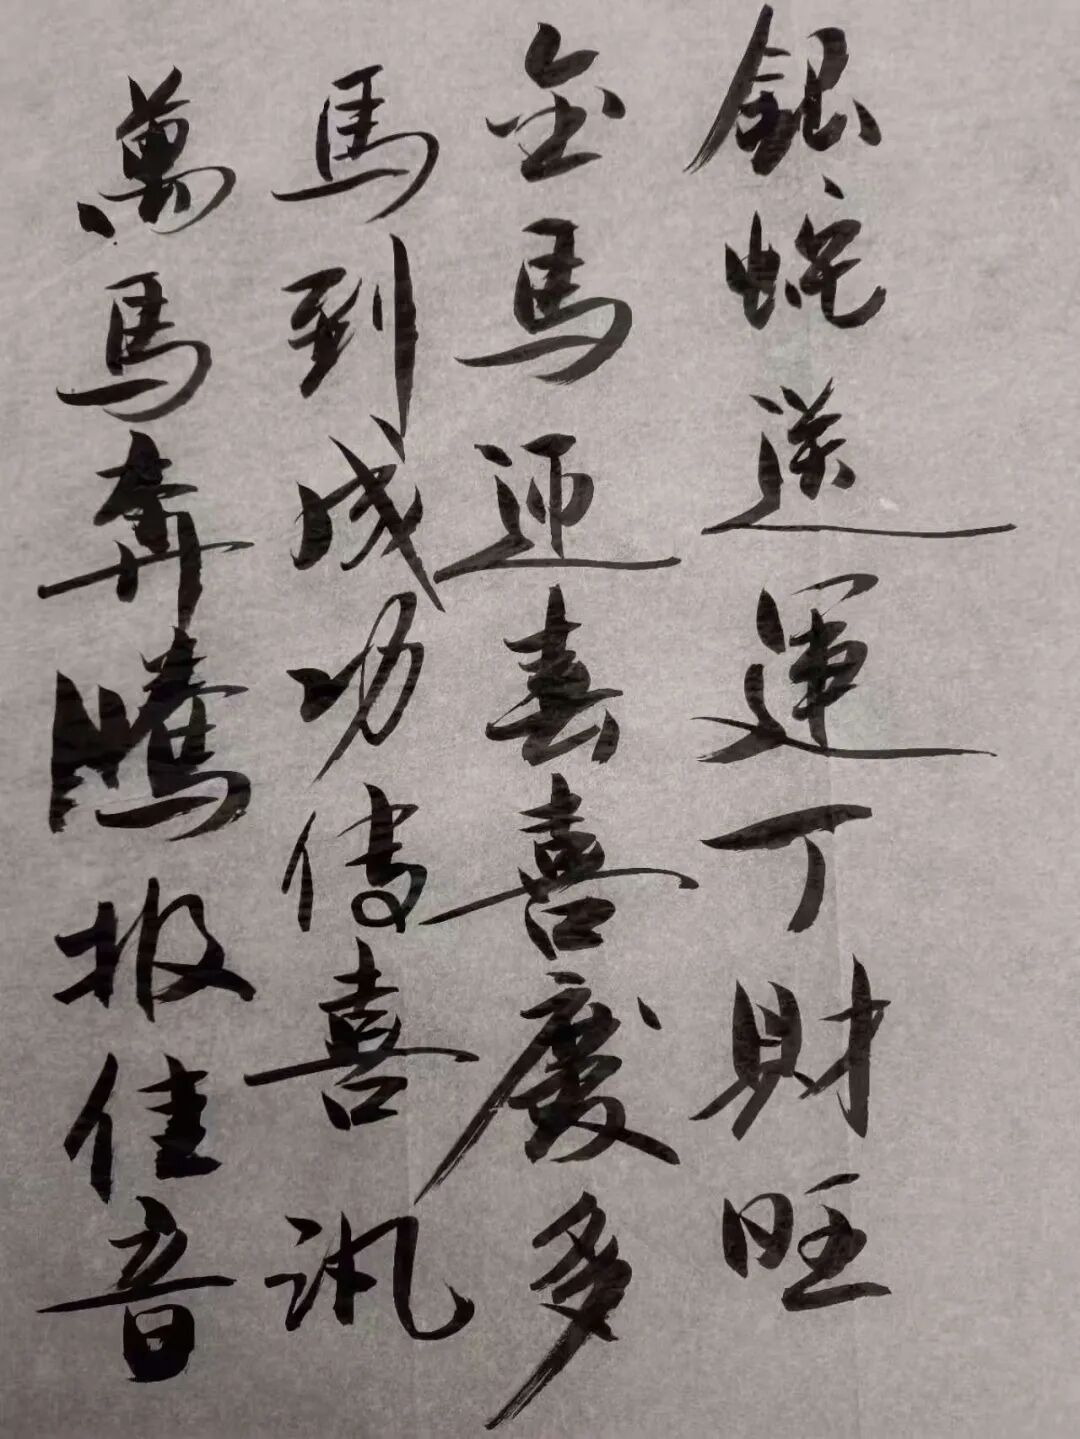 銀蛇送運丁財旺
金馬迎春喜慶多
馬到成功傳喜訊
萬馬奔騰报佳音